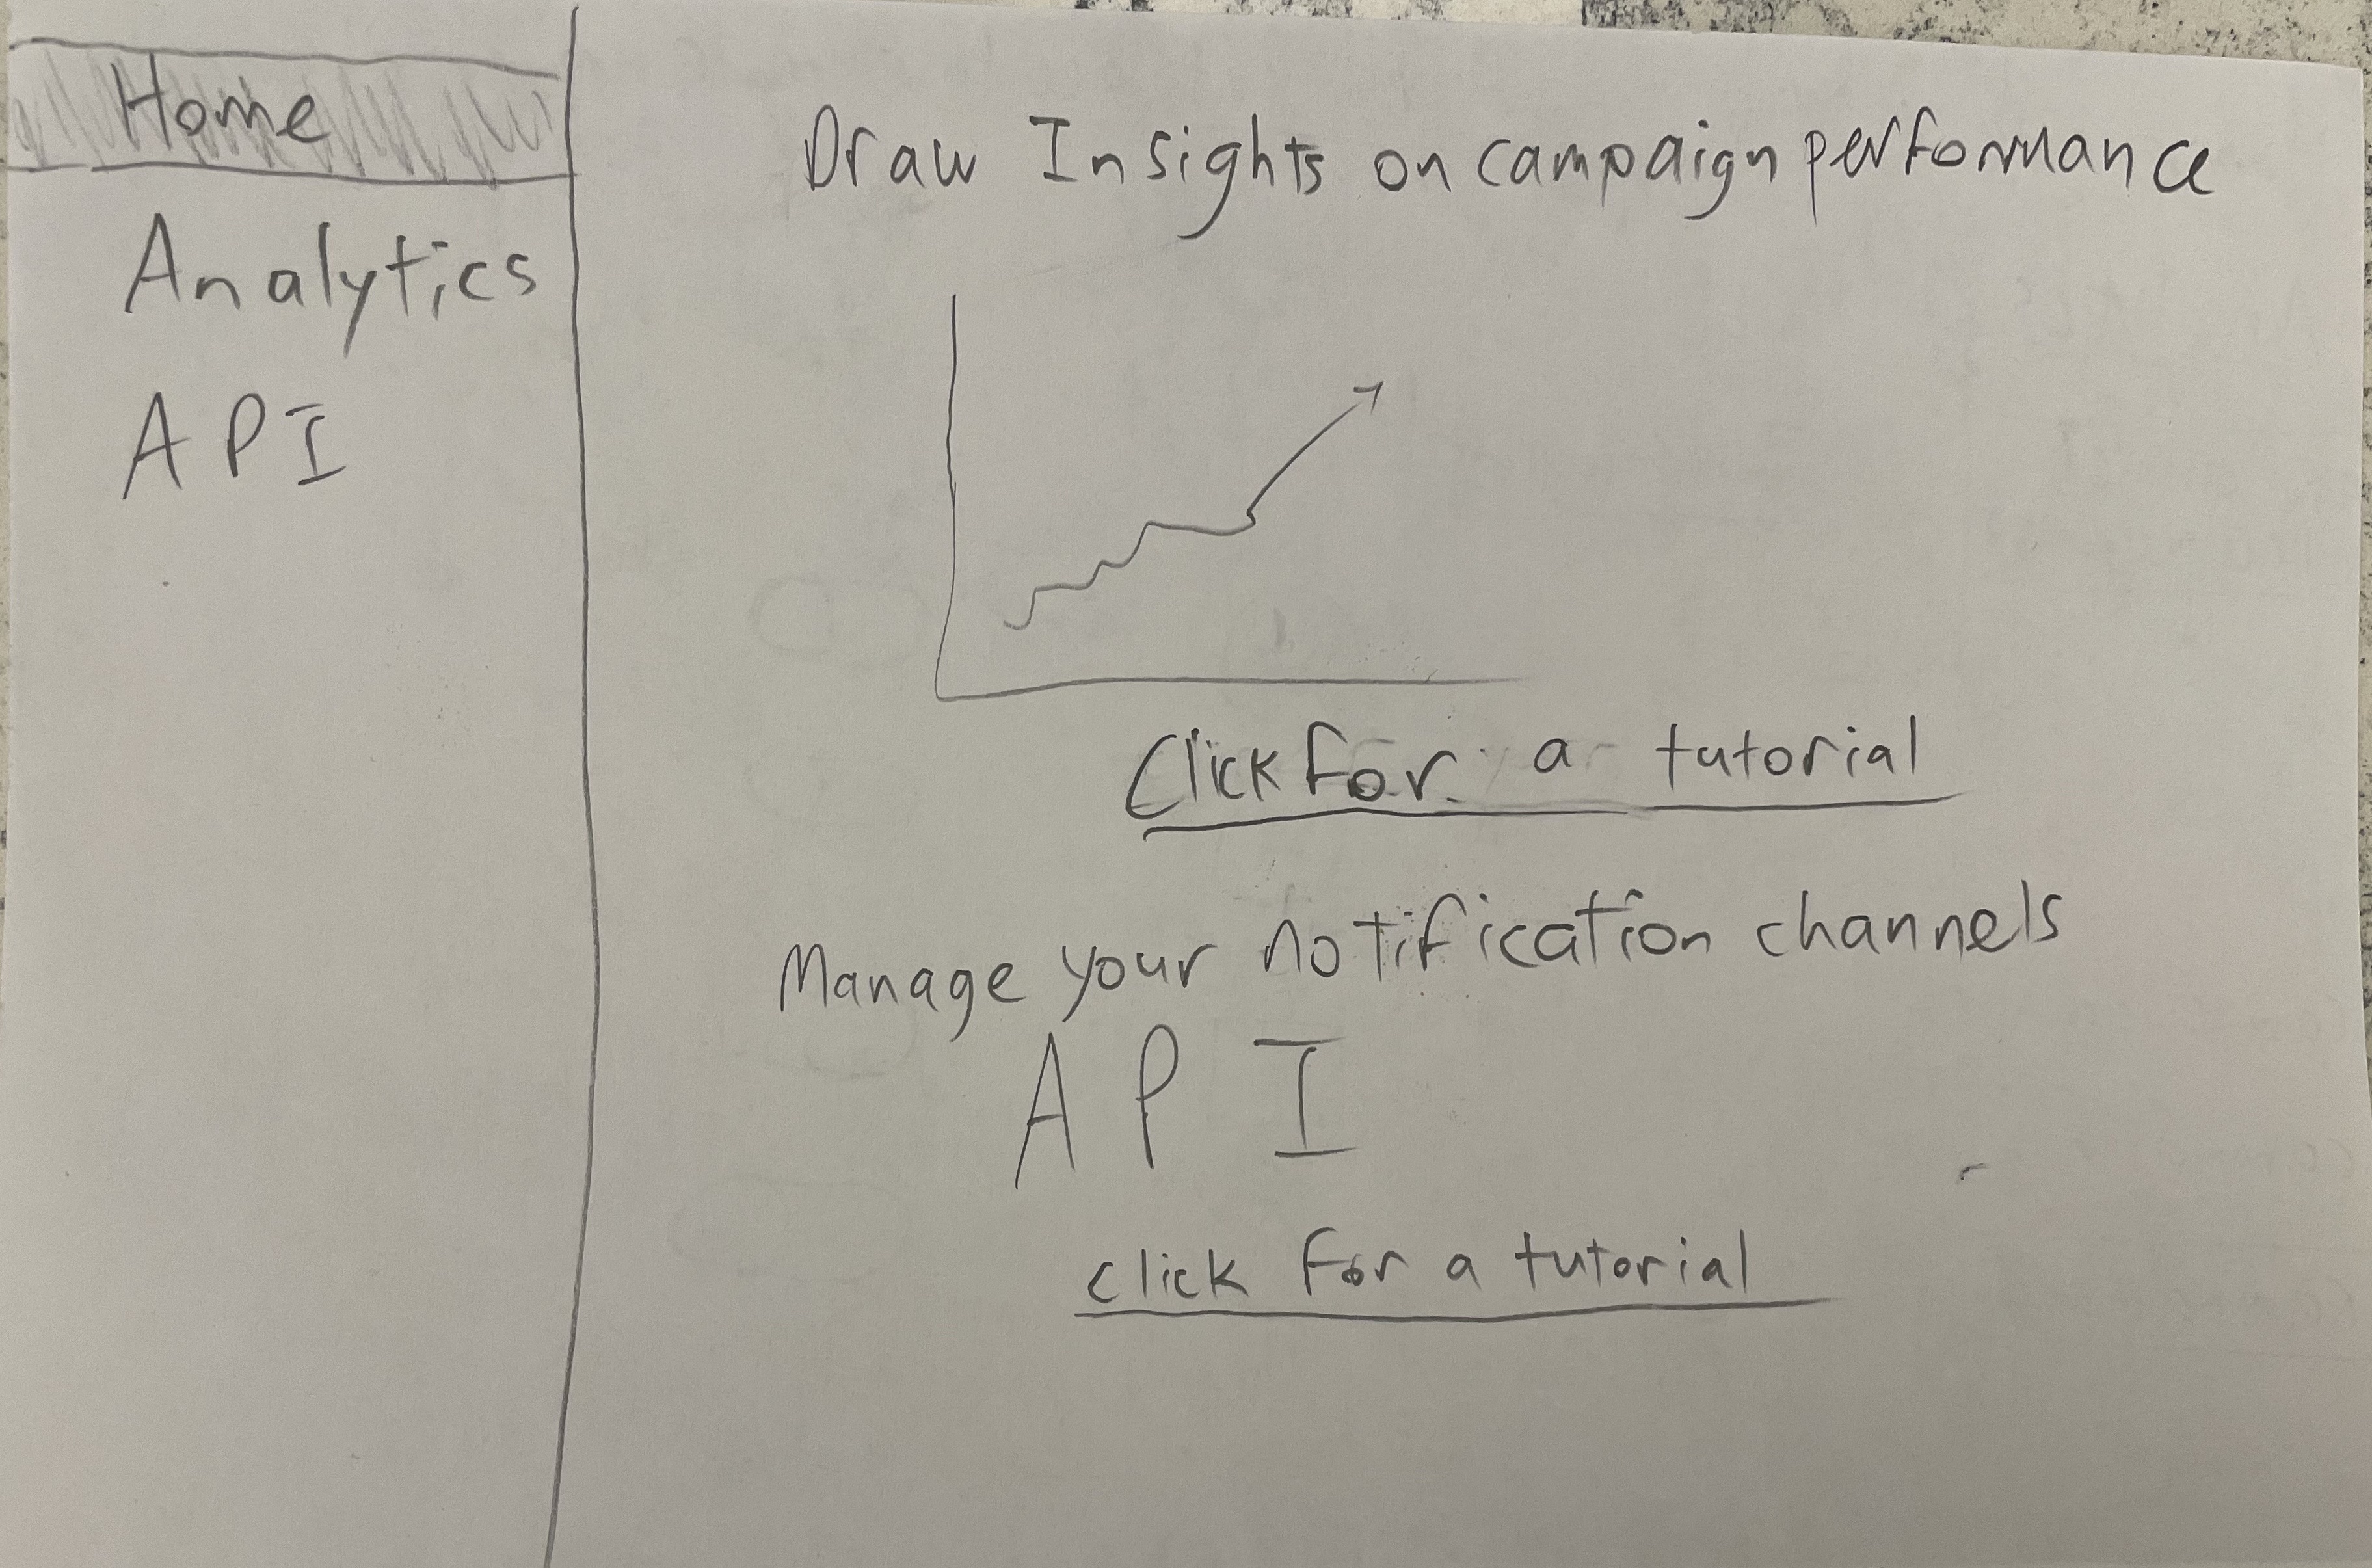 Home
Analytics
API
Draw Insights on campaign performance
Click for a tutorial
Manage your notification channels
API
click for a tutorial